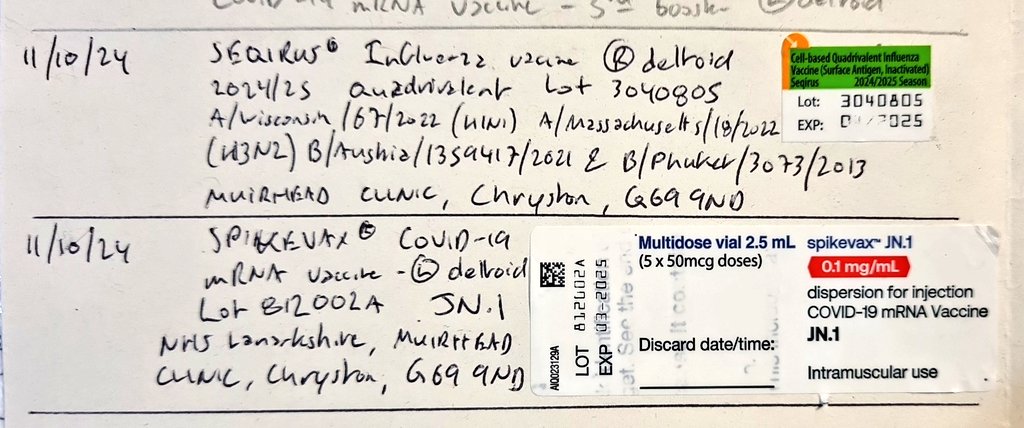 Covid-19 mRNA vaccine - 5th booster (L) deltoid
11/10/24 SEQIRUS® Influenza vaccine (R) deltoid
2024/25 quadrivalent Lot 3040805
A/Wisconsin/67/2022 (H1N1) A/Massachusetts/18/2022
(H3N2) B/Austria/1359417/2021 & B/Phuket/3073/2013
MUIRHEAD CLINIC, Chryston, G69 9ND
Cell-based Quadrivalent Influenza
Vaccine (Surface Antigen, Inactivated)
Seqirus 2024/2025 Season
Lot: 3040805
EXP: 2025
11/10/24 SPIKEVAX® COVID-19
mRNA vaccine - (L) deltoid
Lot 812002A JN.1
NHS Lanarkshire, MUIRHEAD
CLINIC, Chryston, G69 9ND
AI0023129A
LOT 812D02A
EXP 03-2025
Multidose vial 2.5 mL
(5 x 50mcg doses)
Discard date/time:
spikevax™ JN.1
0.1 mg/mL
dispersion for injection
COVID-19 mRNA Vaccine
JN.1
Intramuscular use